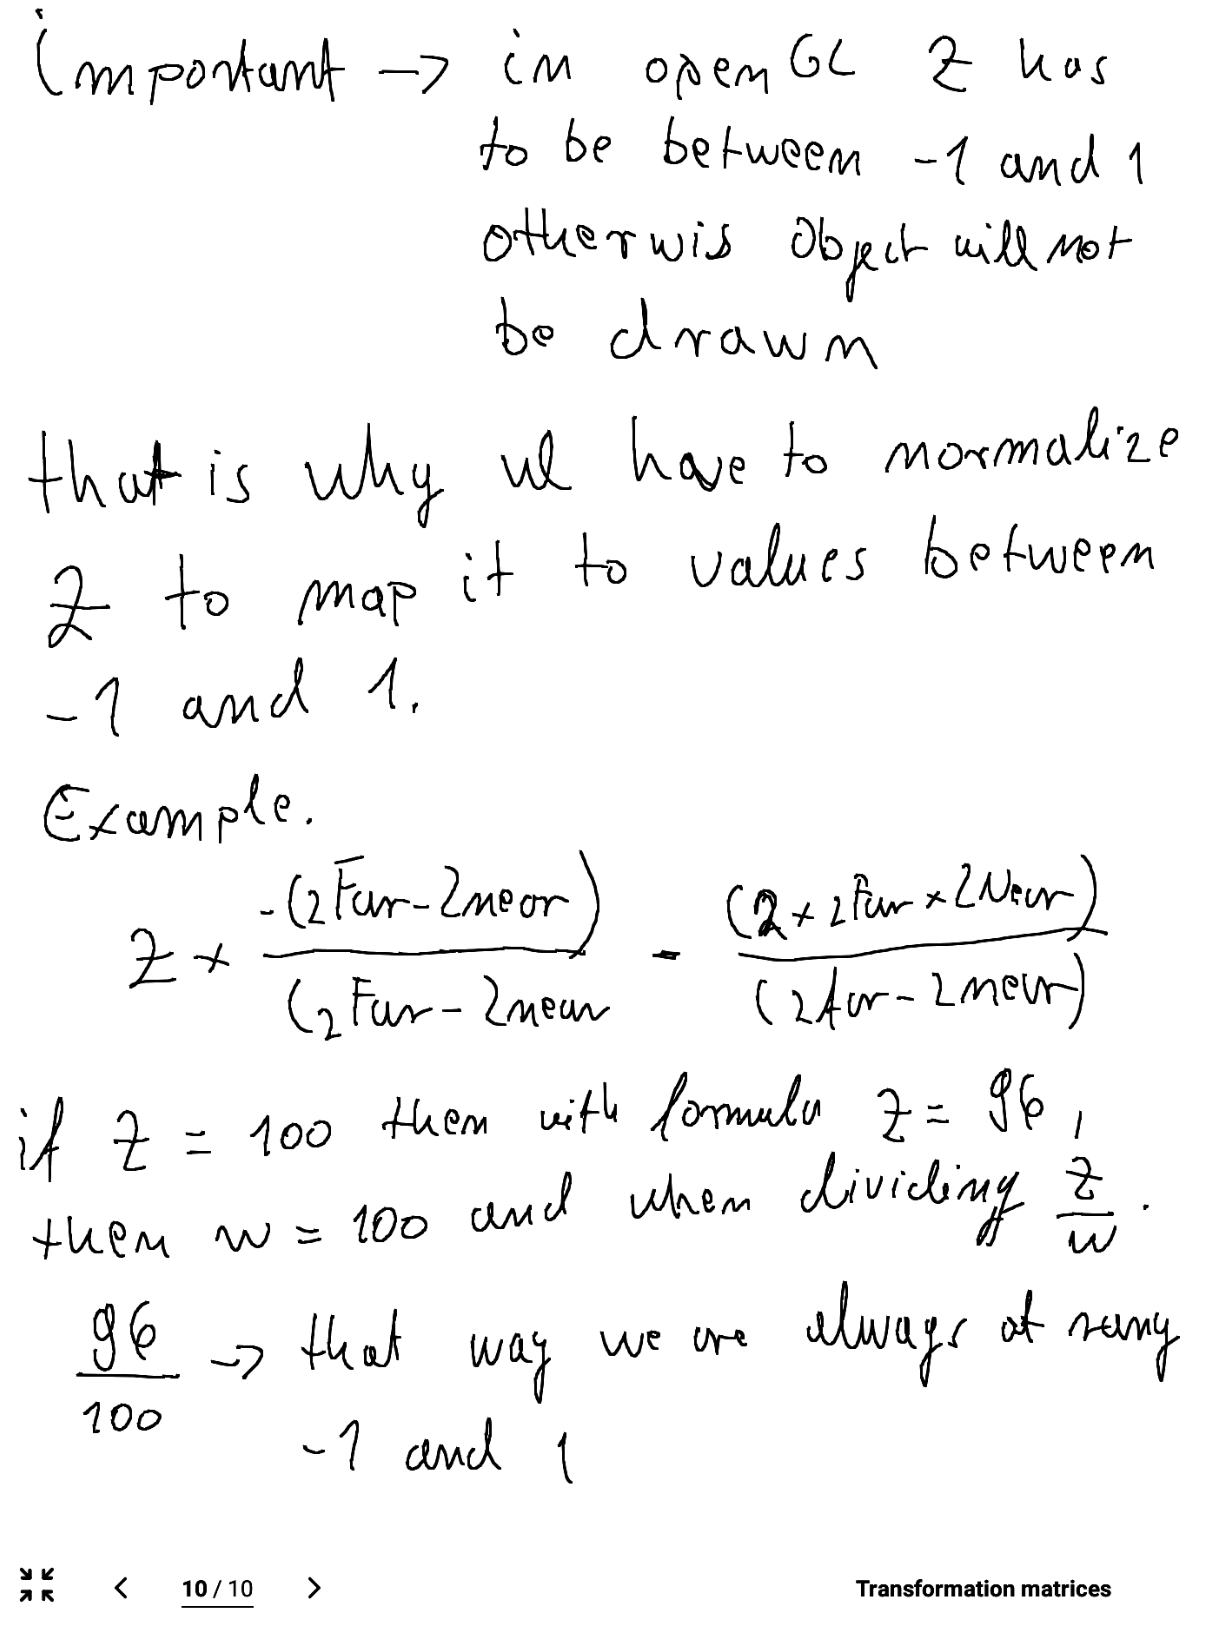 important → in openGL Z has
to be between -1 and 1
otherwis object will not
be drawn
that is why we have to normalize
Z to map it to values between
-1 and 1.
Example.
Z × -(zFar-Znear) / (zFar-Znear - (2 × zFar × ZNear) / (zfar-znear)
if Z = 100 then with formula Z = 96,
then w = 100 and when dividing Z/w.
96/100 → that way we are always at
-1 and 1
10 / 10
Transformation matrices